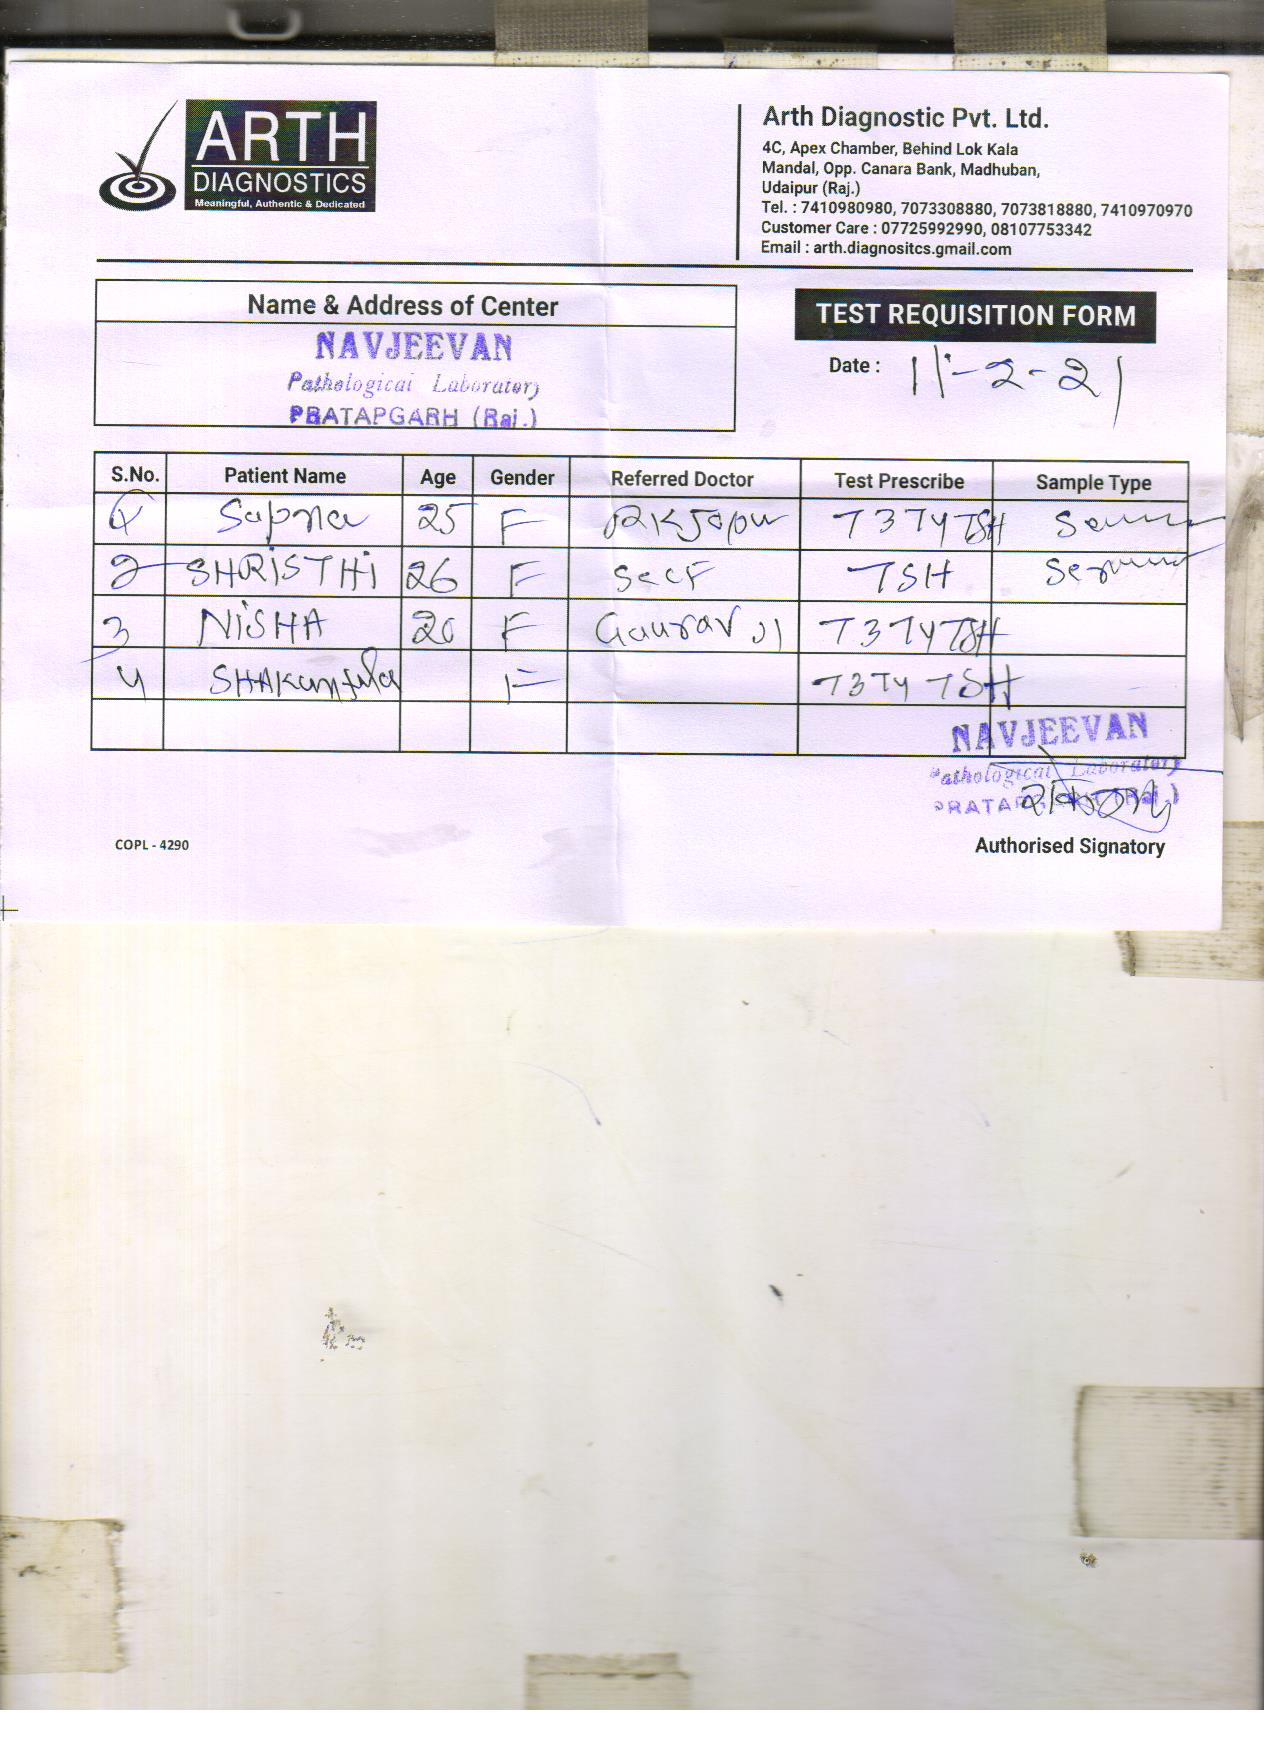 ARTH
DIAGNOSTICS
Meaningful, Authentic & Dedicated
Arth Diagnostic Pvt. Ltd.
4C, Apex Chamber, Behind Lok Kala
Mandal, Opp. Canara Bank, Madhuban,
Udaipur (Raj.)
Tel. : 7410980980, 7073308880, 7073818880, 7410970970
Customer Care : 07725992990, 08107753342
Email : arth.diagnositcs.gmail.com
Name & Address of Center
NAVJEEVAN
Pathological Laboratory
PRATAPGARH (Raj.)
TEST REQUISITION FORM
Date : 11-2-21
S.No. Patient Name Age Gender Referred Doctor Test Prescribe Sample Type
Sapna 25 F T3 T4 TSH
2 SHRiSTHi 26 F Self TSH Serum
3 NiSHA 20 F Gaurav JI T3 T4 TSH
4 SHAKuntala F T3 T4 TSH
NAVJEEVAN
Pathological Laboratory
PRATAPGARH (Raj.)
COPL - 4290
Authorised Signatory